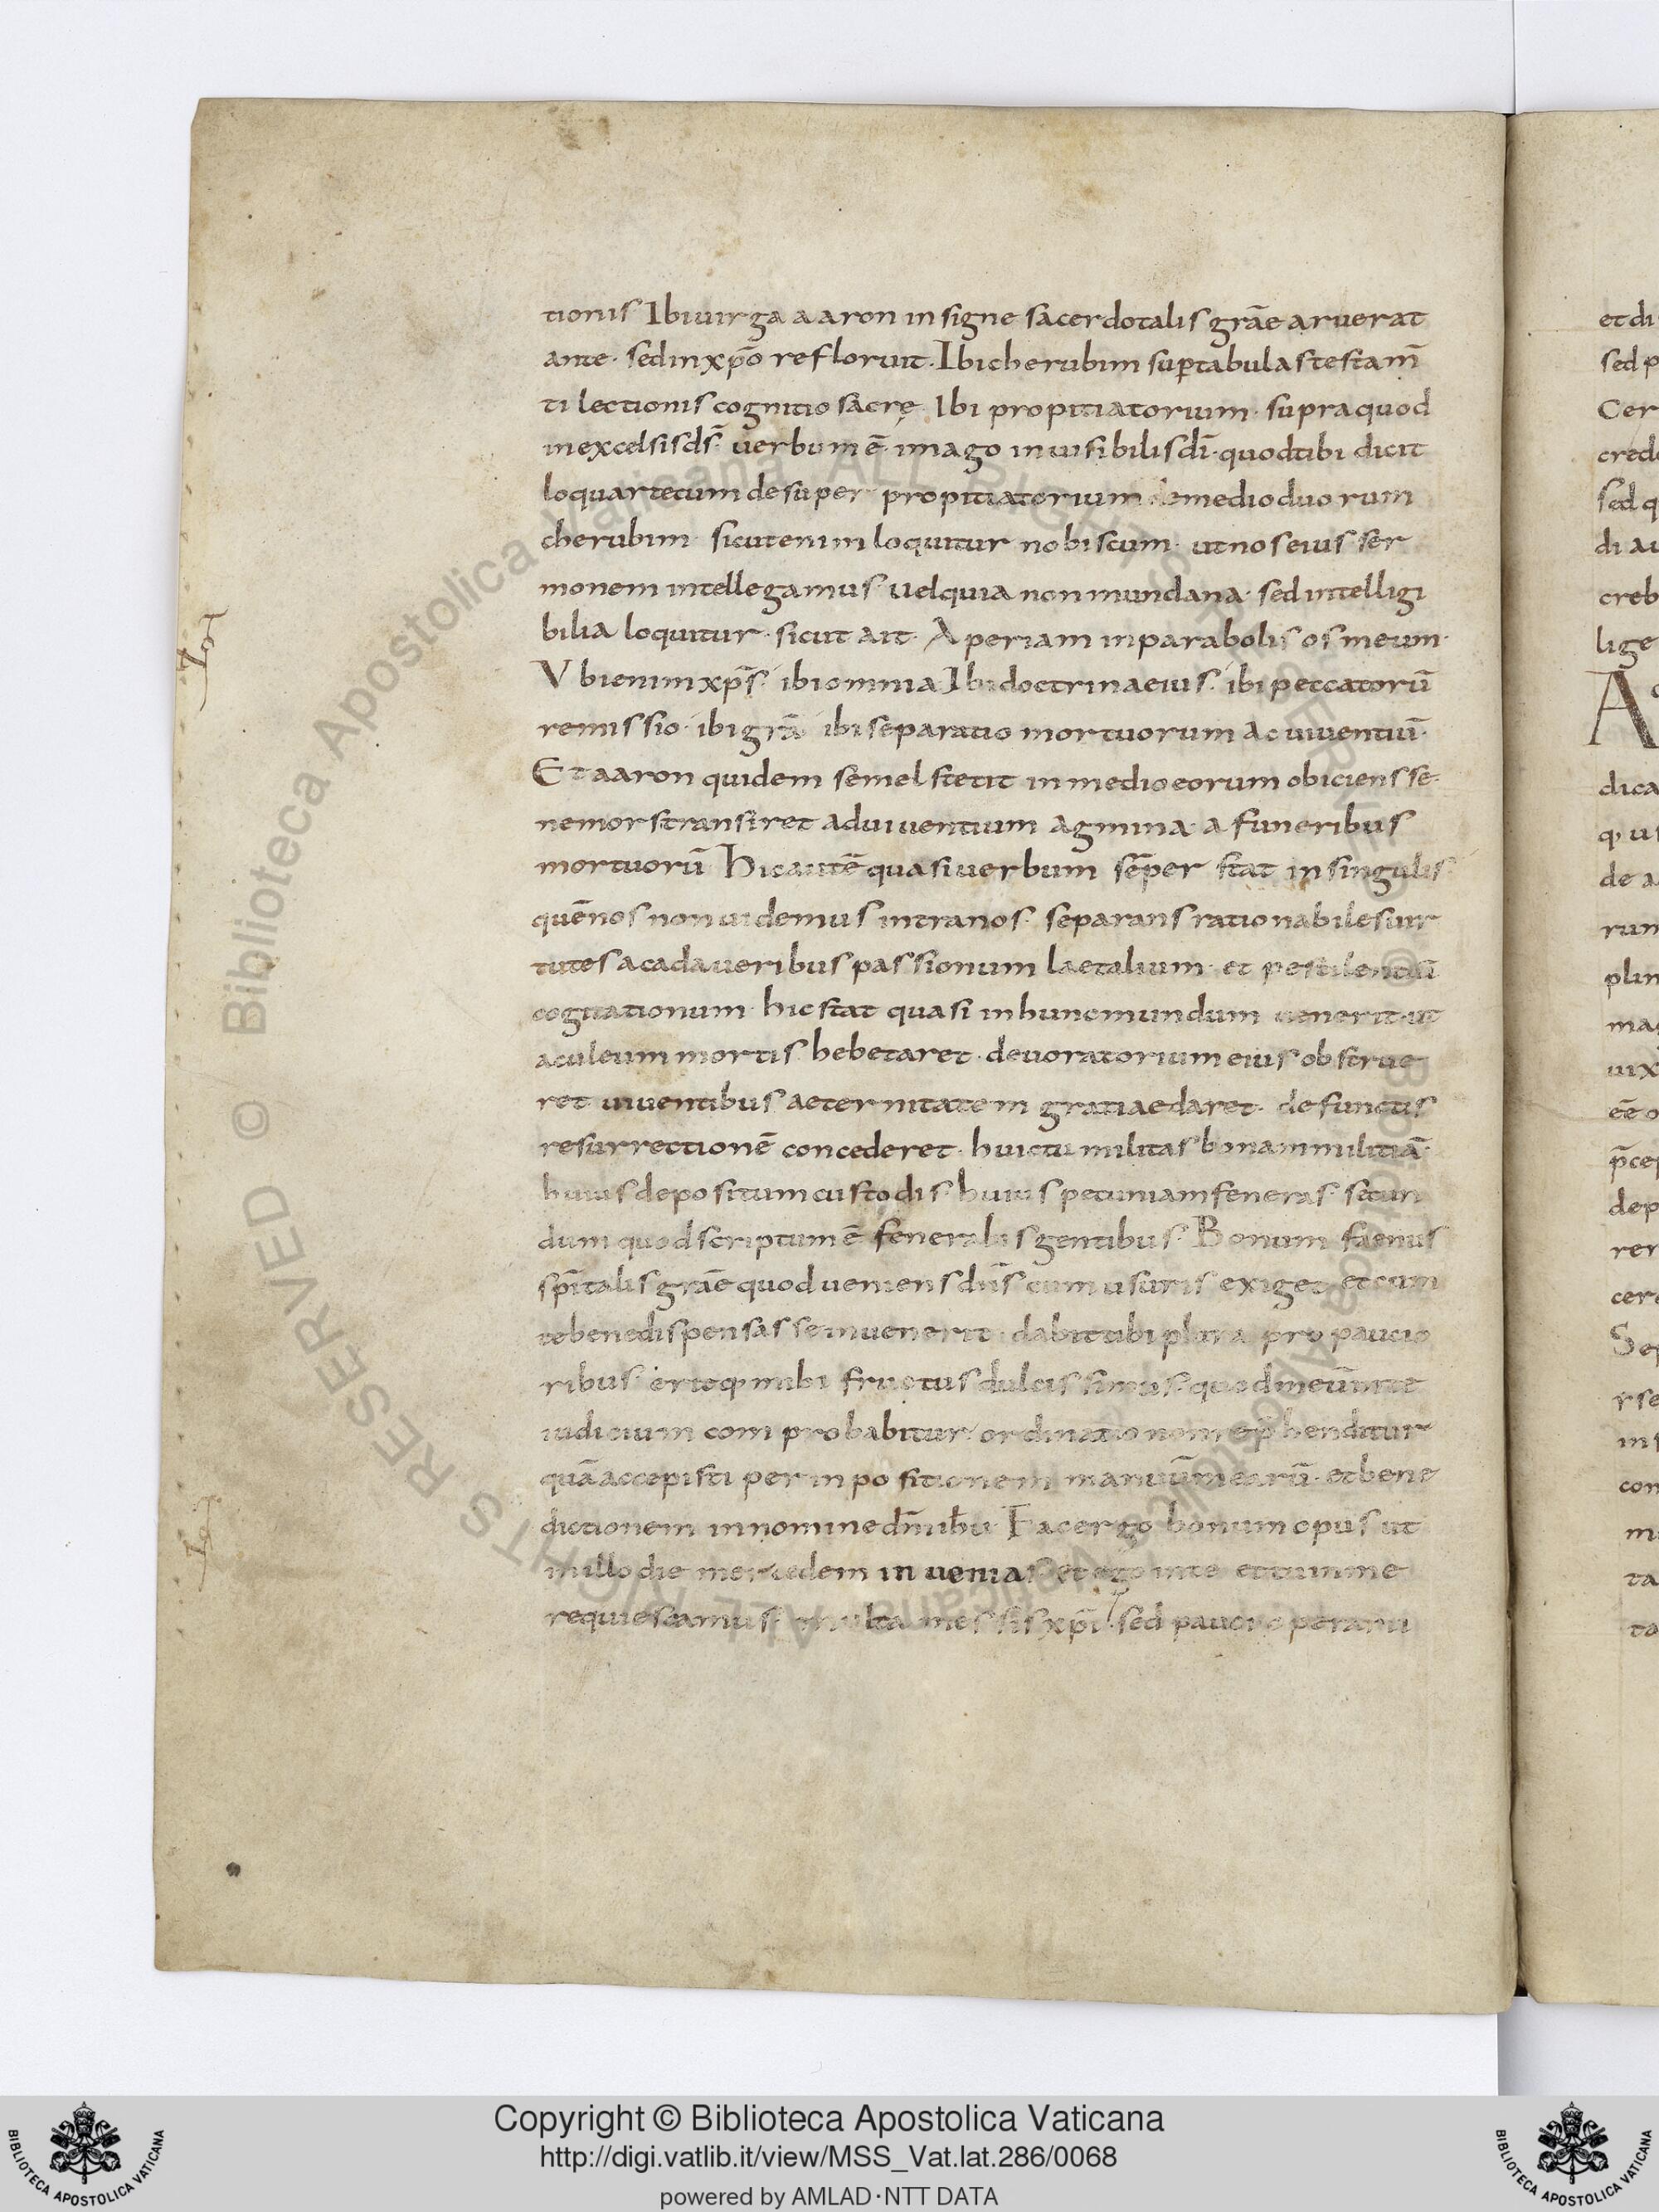 tionis Ibi uirga aaron in signe sacerdotalis grāe aruerat
ante · sed in xp̄o refloruit . Ibi cherubim sup tabulas testam̄
ti lectionis cognitio sacrę Ibi propitiatorium · supra quod
in excelsis ds̄ uerbum ē imago inuisibilis dī · quod tibi dicit
loquar tecum desuper propitiatorium de medio duorum
cherubim · sicut enim loquitur nobiscum · ut nos eius ser
monem intellegamus · uel quia non mundana · sed intelligi
bilia loquitur · sicut ait · Aperiam in parabolis os meum ·
Vbi enim xp̄s · ibi omnia Ibi doctrina eius · ibi peccatorū
remissio · ibi grā ibi separatio mortuorum ac uiuentiū ·
Et aaron quidem semel stetit in medio eorum obiciens se ·
ne mors transiret ad uiuentium agmina · a funeribus
mortuorū Hic autē quasi uerbum sēper stat in singulis
quē nos non uidemus intra nos · separans rationabiles uir
tutes a cadaueribus passionum laetalium · et pestilentiū
cogitationum · hic stat quasi in hunc mundum uenerit · ut
aculeum mortis hebetaret · deuoratorium eius obstrue
ret uiuentibus aeternitatem gratiae daret · defunctis
resurrectionē concederet · huic tu militas bonam militiā ·
huius depositum custodis · huius pecuniam feneras · secun
dum quod scriptum ē fenerabis gentibus · Bonum faenus
sp̄italis grāe quod ueniens dn̄s cum usuris exiget et cum
te bene dispensasse inuenerit · dabit tibi plura pro paucio
ribus · eritq; mihi fructus dulcissimus · quod meū in te
iudicium comprobabitur · ordinatio non rep̄henditur
quā accepisti per inpositionem manuū mearū · et bene
dictionem in nomine dn̄i ihū Fac ergo bonum opus ut
in illo die mercedem inuenias et ego in te et tu in me
requiescamus · multa messis xp̄i · sed pauci operarii
et di
sed p
Cer
cred
sed q
di au
creb
lige
A
dica
q; us
de a
run
plin
mag
uix
eē o
p̄cep
dep
rer
cera
Sep
rse
ins
con
mi
ta
ta
© Biblioteca Apostolica Vaticana ALL RIGHTS RESERVED © Biblioteca Apostolica Vaticana ALL RIGHTS RESERVED
BIBLIOTECA APOSTOLICA VATICANA
Copyright © Biblioteca Apostolica Vaticana
http://digi.vatlib.it/view/MSS_Vat.lat.286/0068
powered by AMLAD·NTT DATA
BIBLIOTECA APOSTOLICA VATICANA